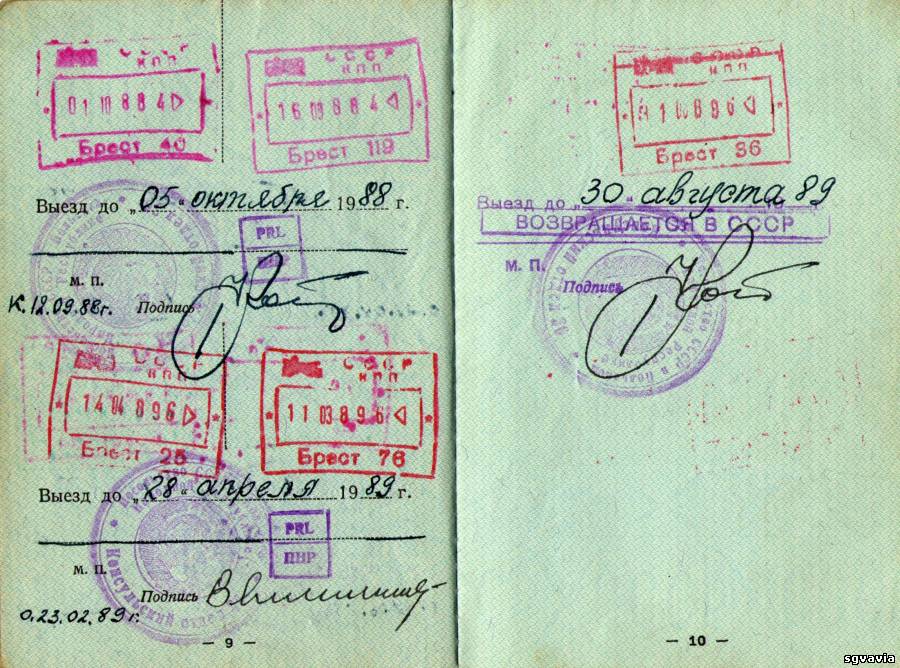 СССР
КПП
01 10 88 4
Брест 40
СССР
КПП
16 09 88 4
Брест 119
Выезд до „05“ октября 1988 г.
PRL
М. П.
К. 12.09.88г. Подпись
СССР
КПП
14 04 89 6
Брест 25
СССР
КПП
11 03 89 6
Брест 76
Выезд до „28“ апреля 1989 г.
PRL
ПНР
М. П.
Подпись
0.23.02.89г.
— 9 —
СССР
КПП
89 6
Брест 36
Выезд до „30“ августа 89
ВОЗВРАЩАЕТСЯ В СССР
М. П.
Подпись
— 10 —
sgvavia